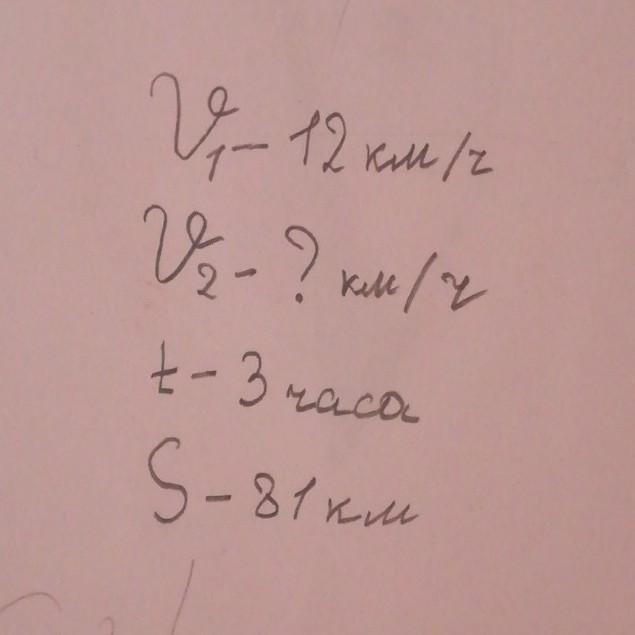 V₁ – 12 км/ч
V₂ – ? км/ч
t – 3 часа
S – 81 км